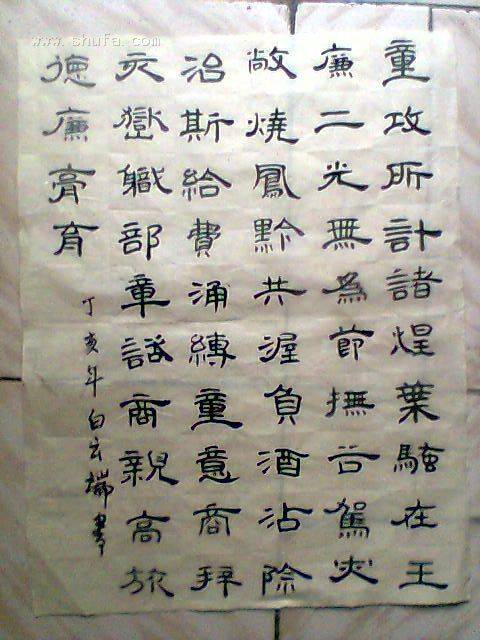 www.shufa.com
重攻所計諸煌葉在王
廉二光無為節撫谷駕
敞燒鳳黔共渥負酒沾除
治斯給費涌縛童意商拜
灾嶽職部章話商親高旅
德廉膏育
丁亥年白云瑞書